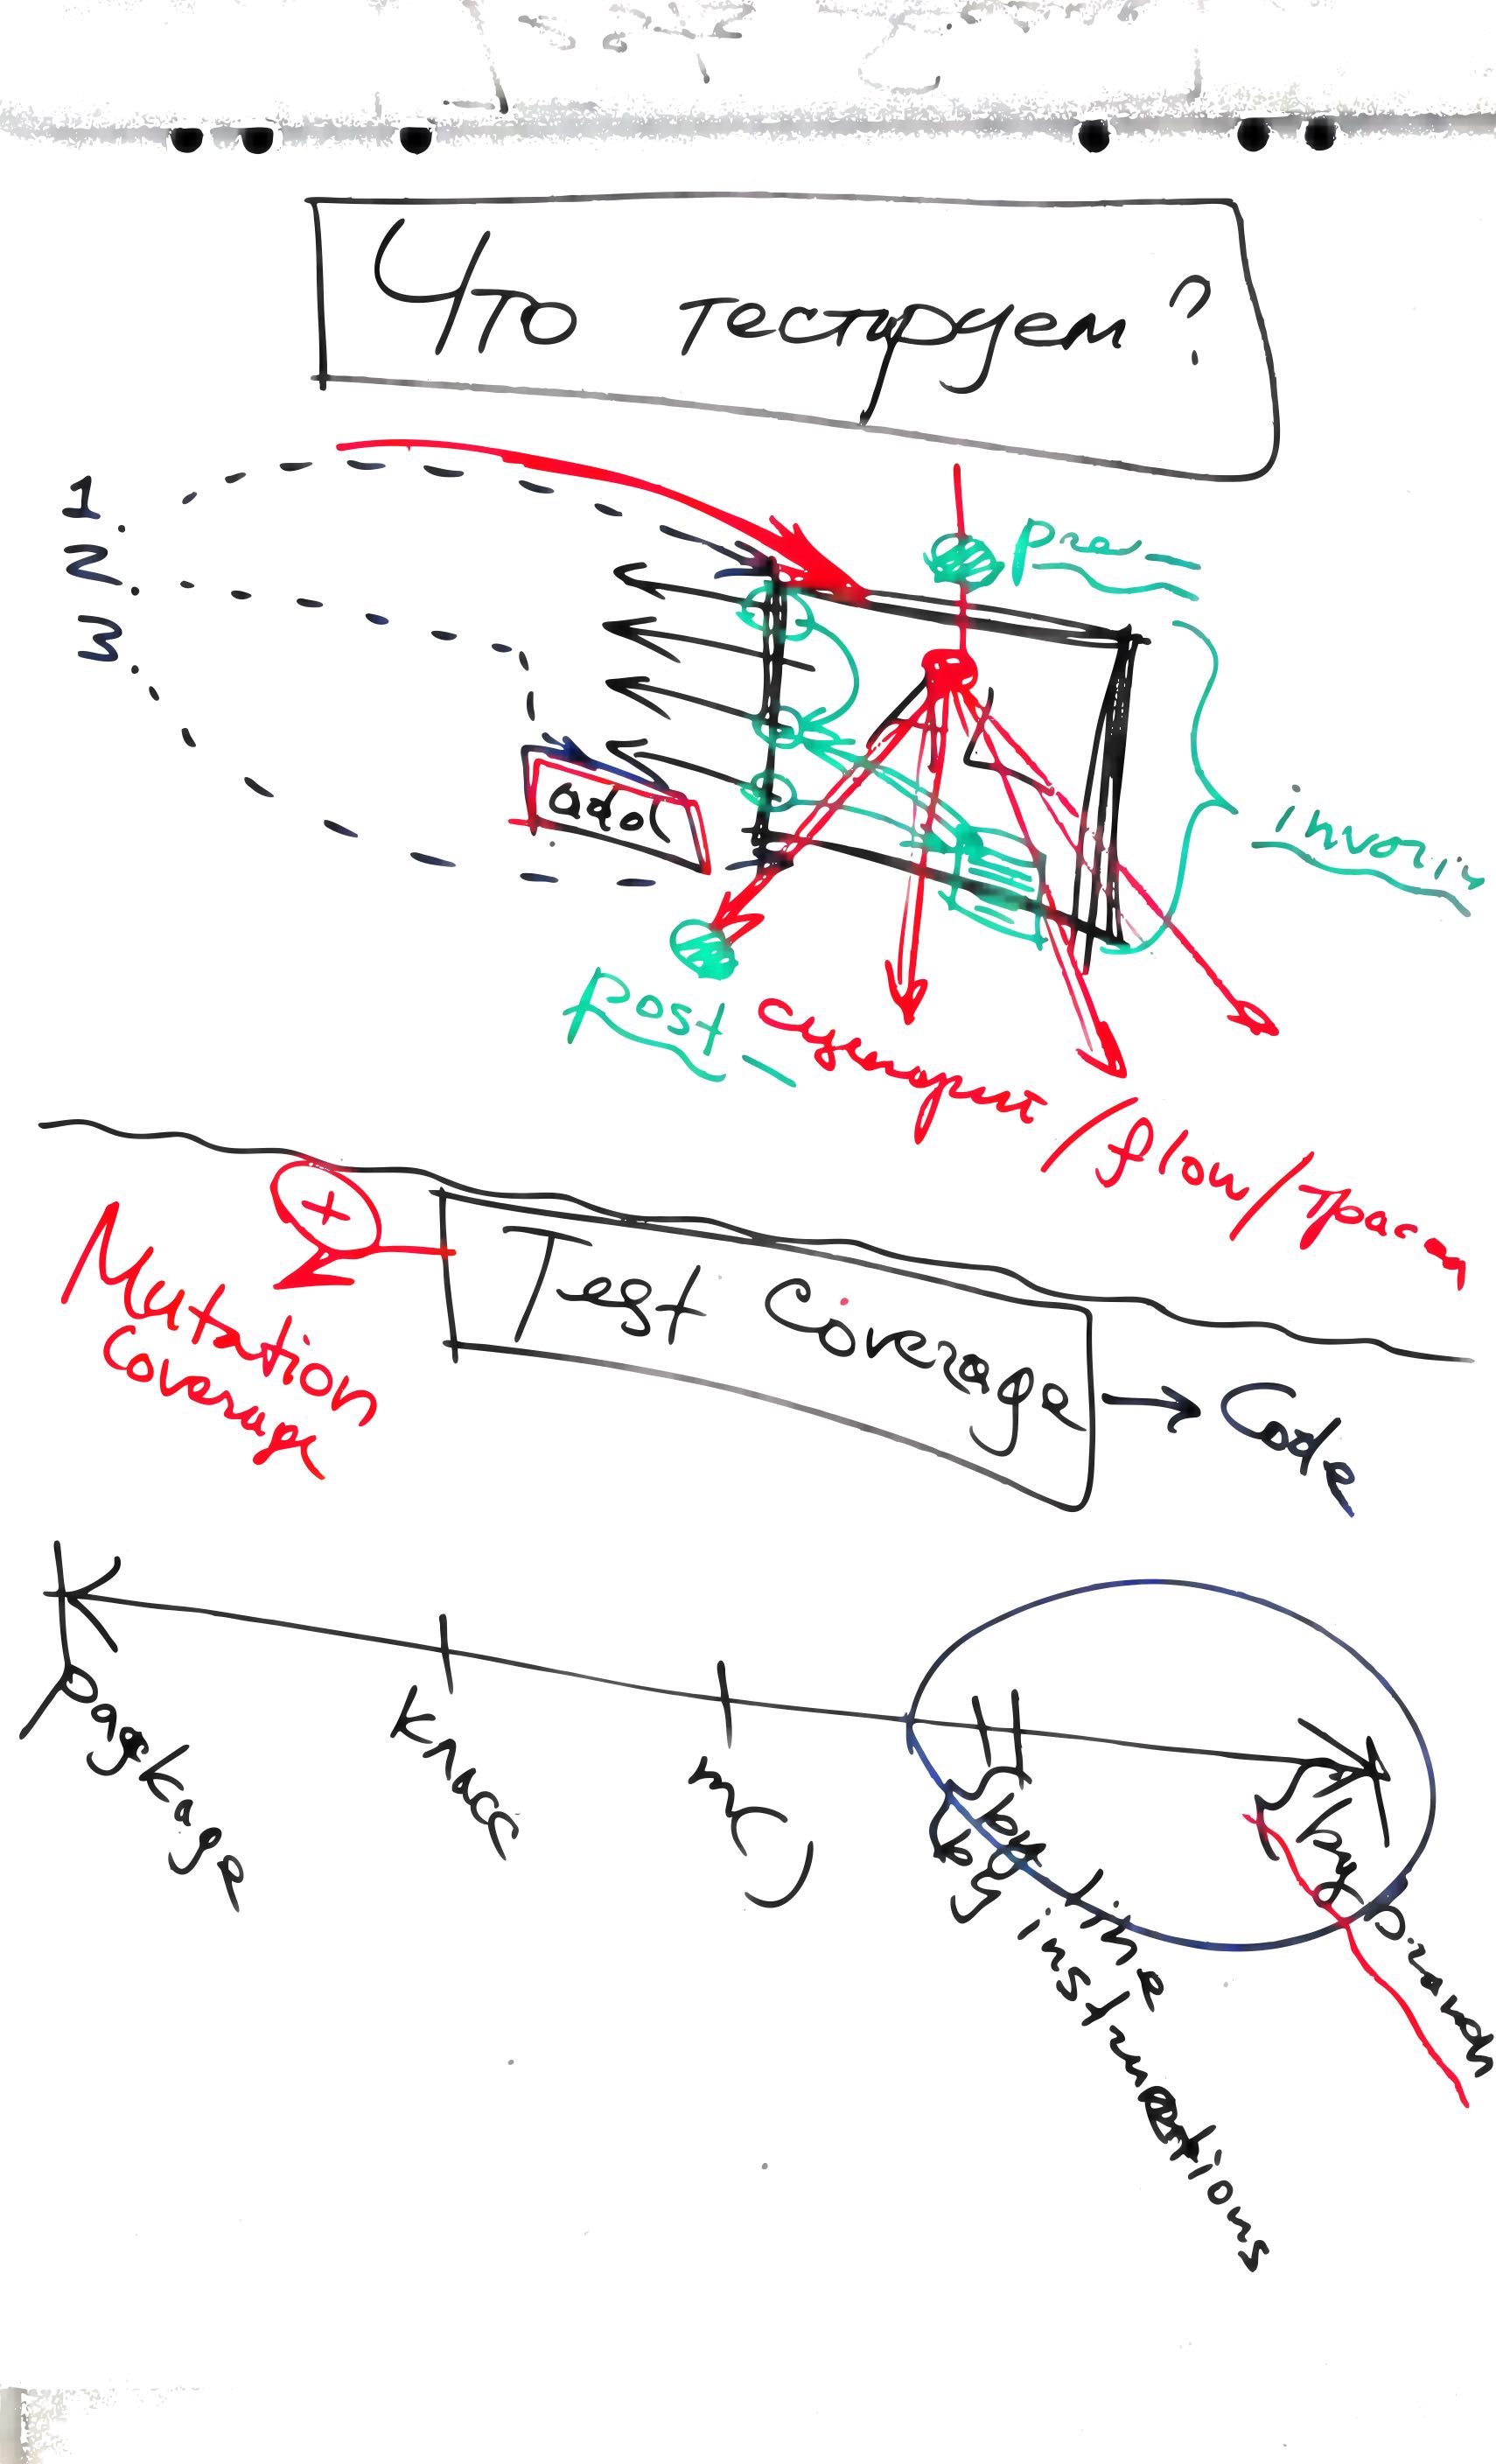 Что тестируем?
1.
2.
3.
pre
invari
Post
сценарий / flow / трасса
+
Mutation
Coverage
Test Coverage
Code
package
класс
m()
by line
by instructions
by branch